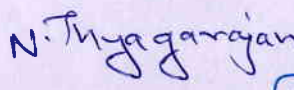 N. Thyagarajan